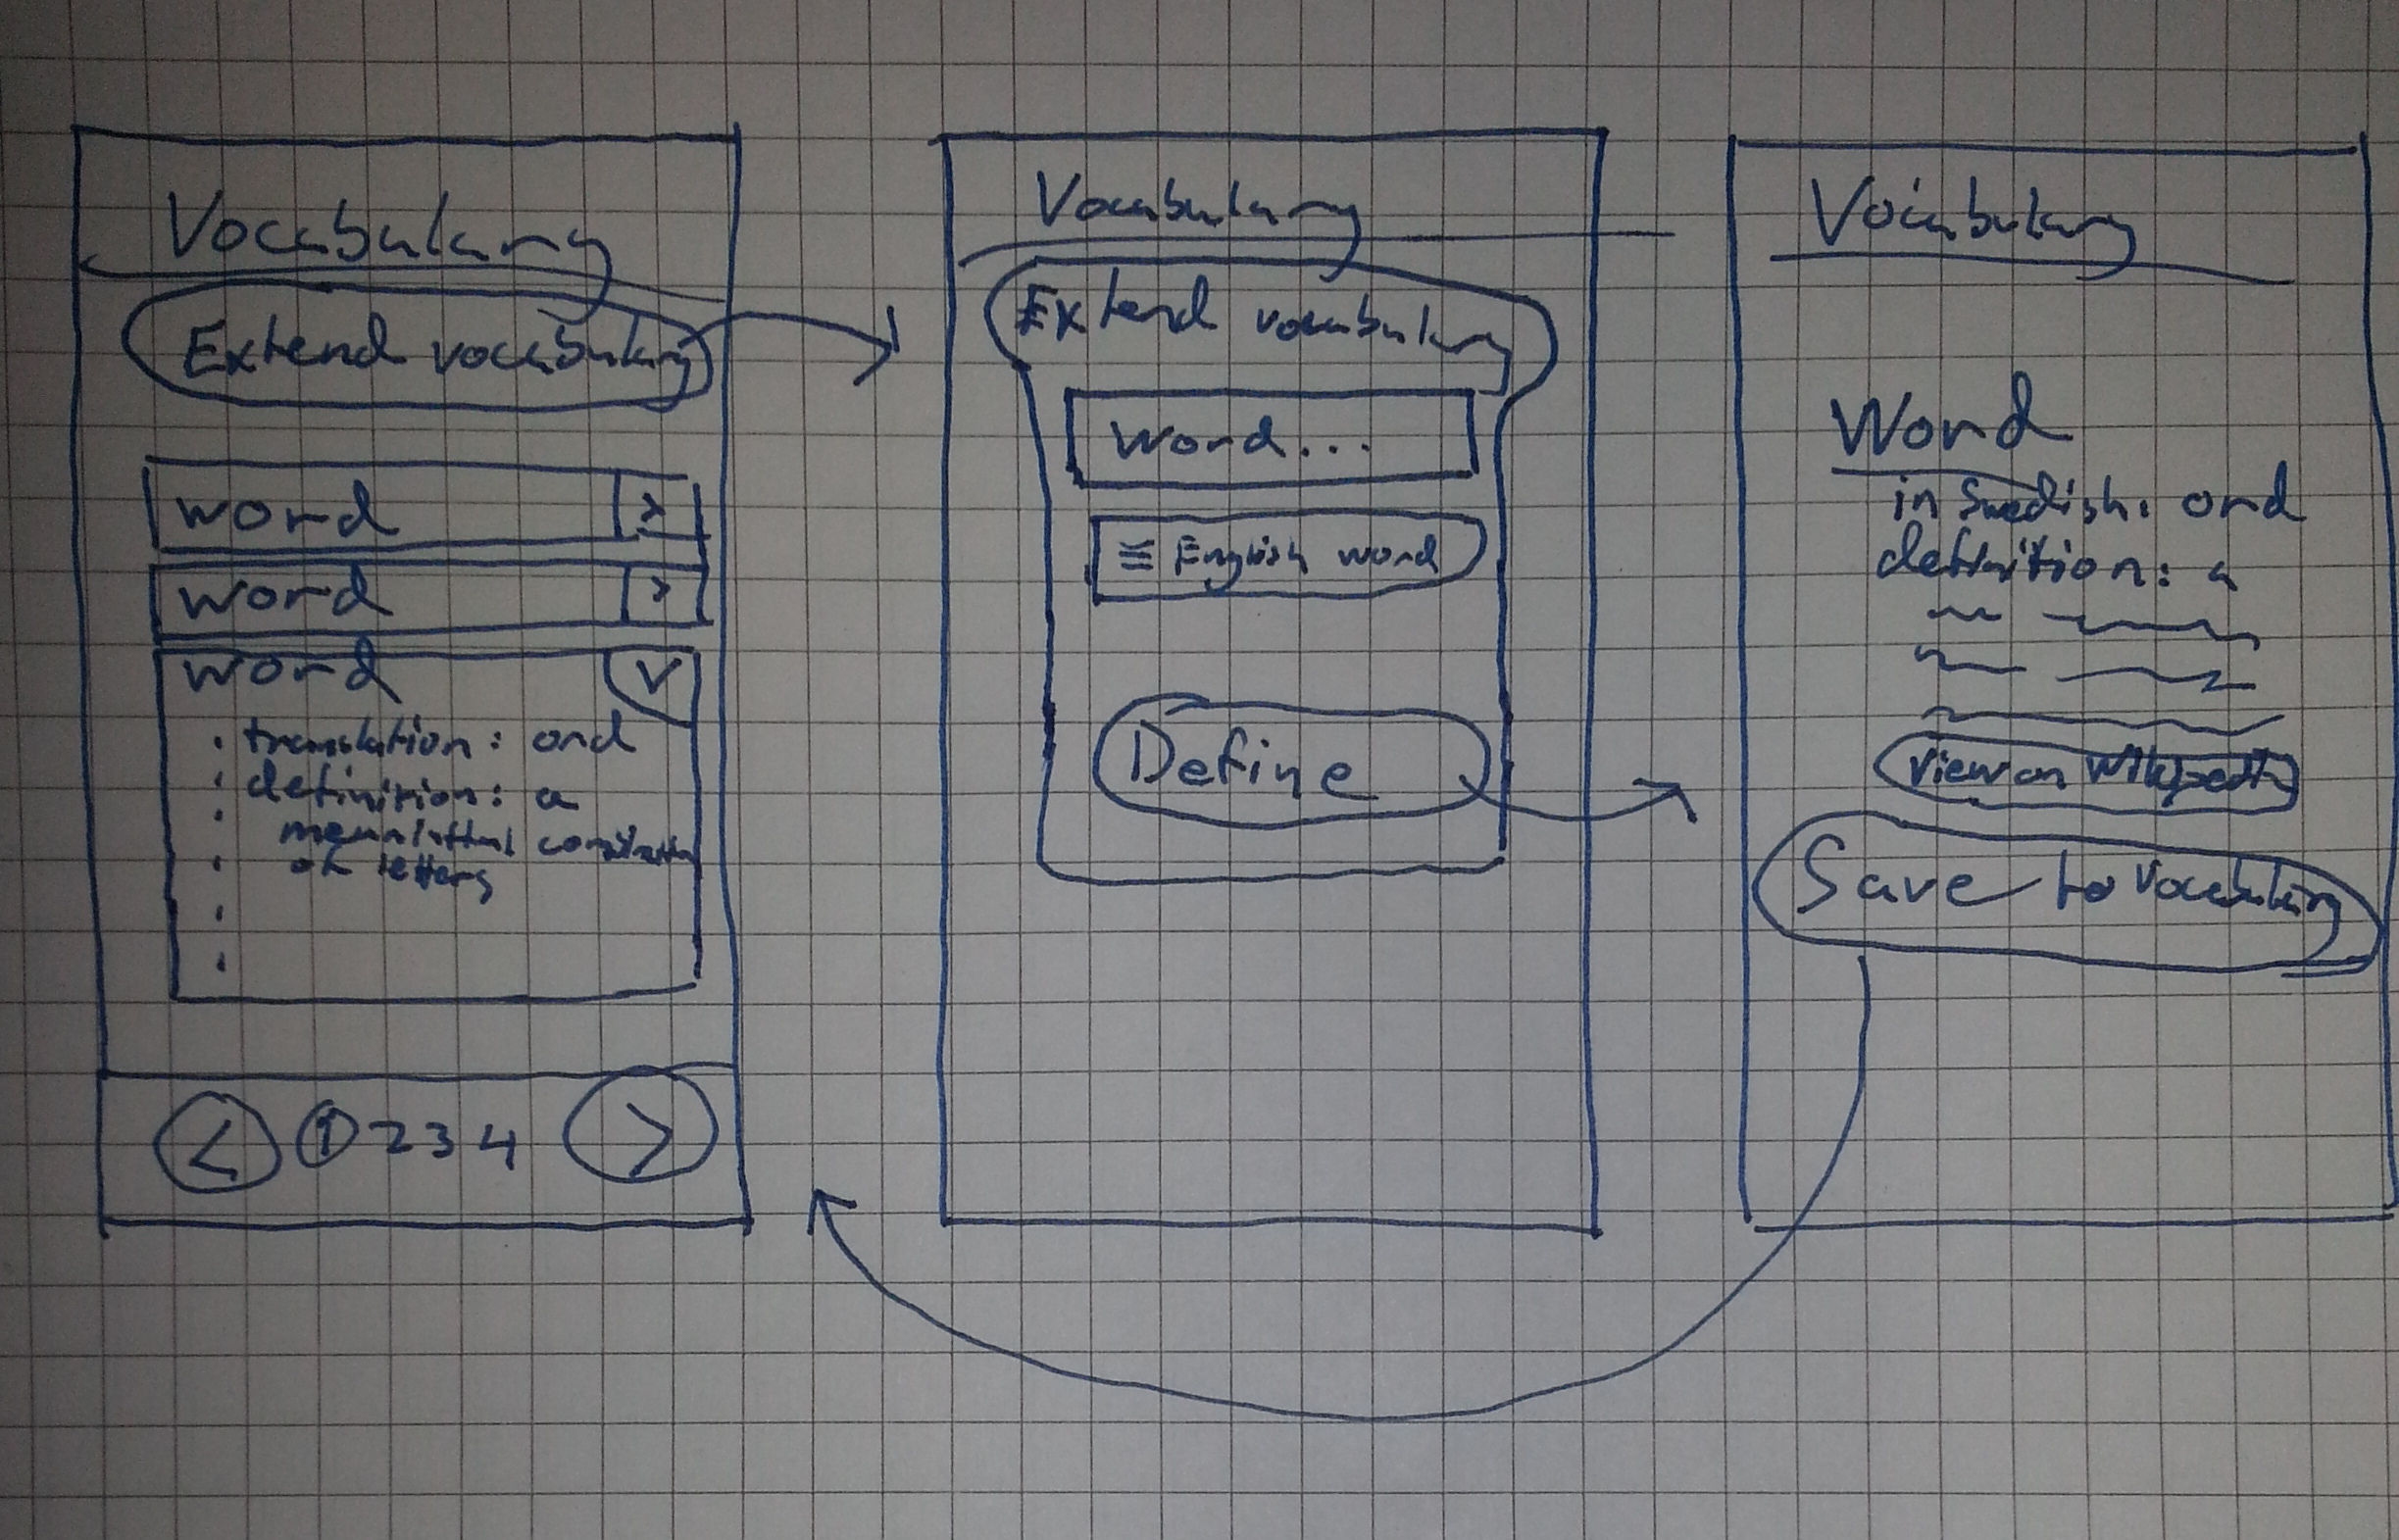 Vocabulary
Extend vocabulary
word >
word >
word v
. translation: ord
. definition: a
of letters
< 1 2 3 4 >
Vocabulary
Extend vocabulary
word...
≡ English word
Define
Vocabulary
Word
in Swedish: ord
definition: a
View on Wikipedia
Save to Vocabulary